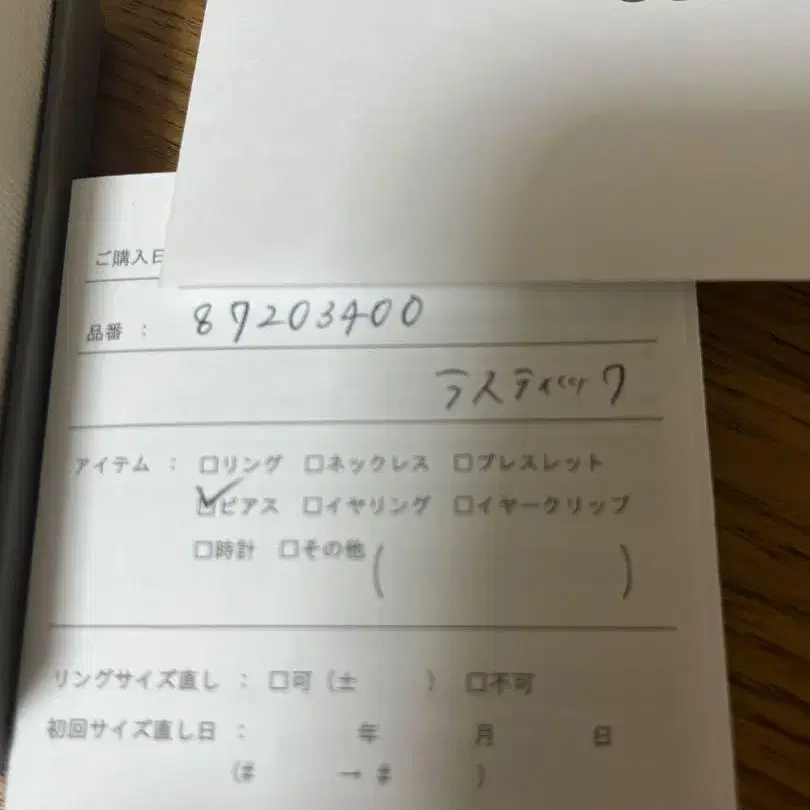 ご購入日
品番 : 87203400
ラスティック
アイテム : □リング □ネックレス □ブレスレット
☑ピアス □イヤリング □イヤークリップ
□時計 □その他( )
リングサイズ直し : □可(± ) □不可
初回サイズ直し日 : 年 月 日
(# → # )